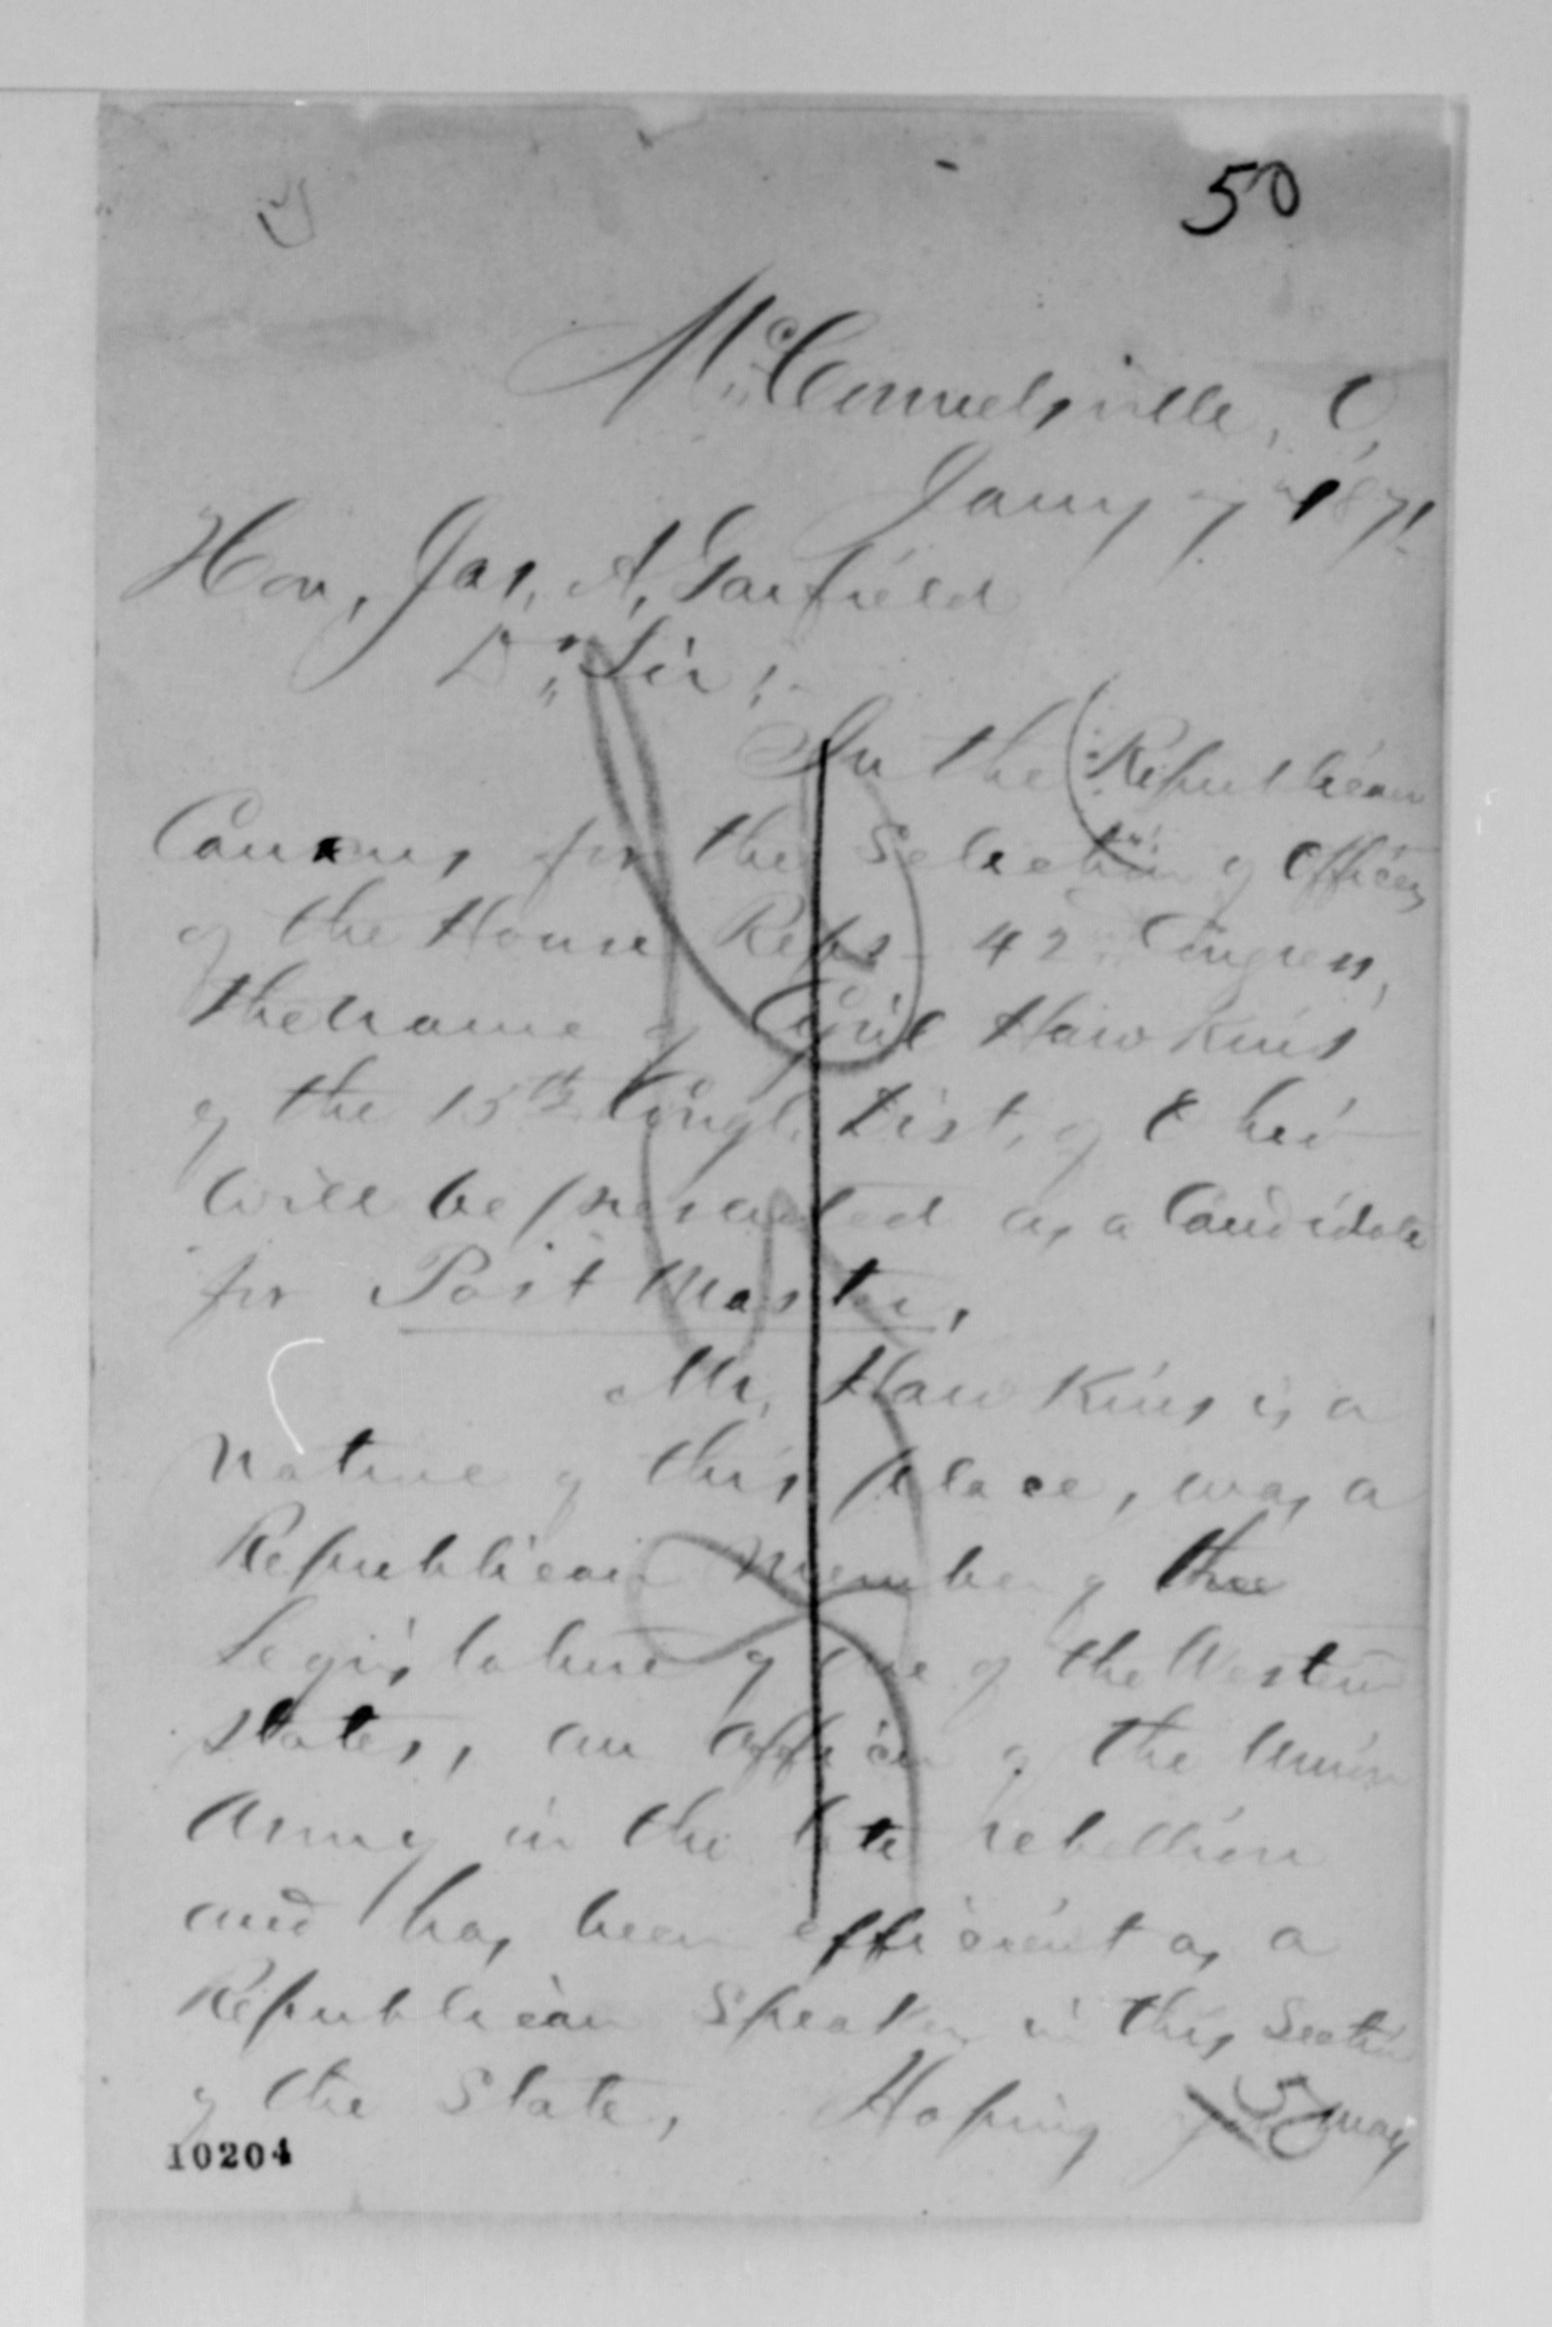 50
McConnelsville, O,
Jany 7th 1871
Hon, Jas, A, Garfield
Dr Sir,
In the Republican
Caucus, for the Selection of Officers
of the House Reps - 42nd Congress,
the name of Cyril Hawkins
of the 15th Congl. Dist, of Ohio
will be presented as a Candidate
for Post Master,
Mr, Hawkins is a
native of this place, was a
Republican member of the
Legislature of one of the Western
states, an officer of the Union
Army in the late rebellion
and has been efficient as a
Republican Speaker in this Section
of the State, Hoping you may
50
10204